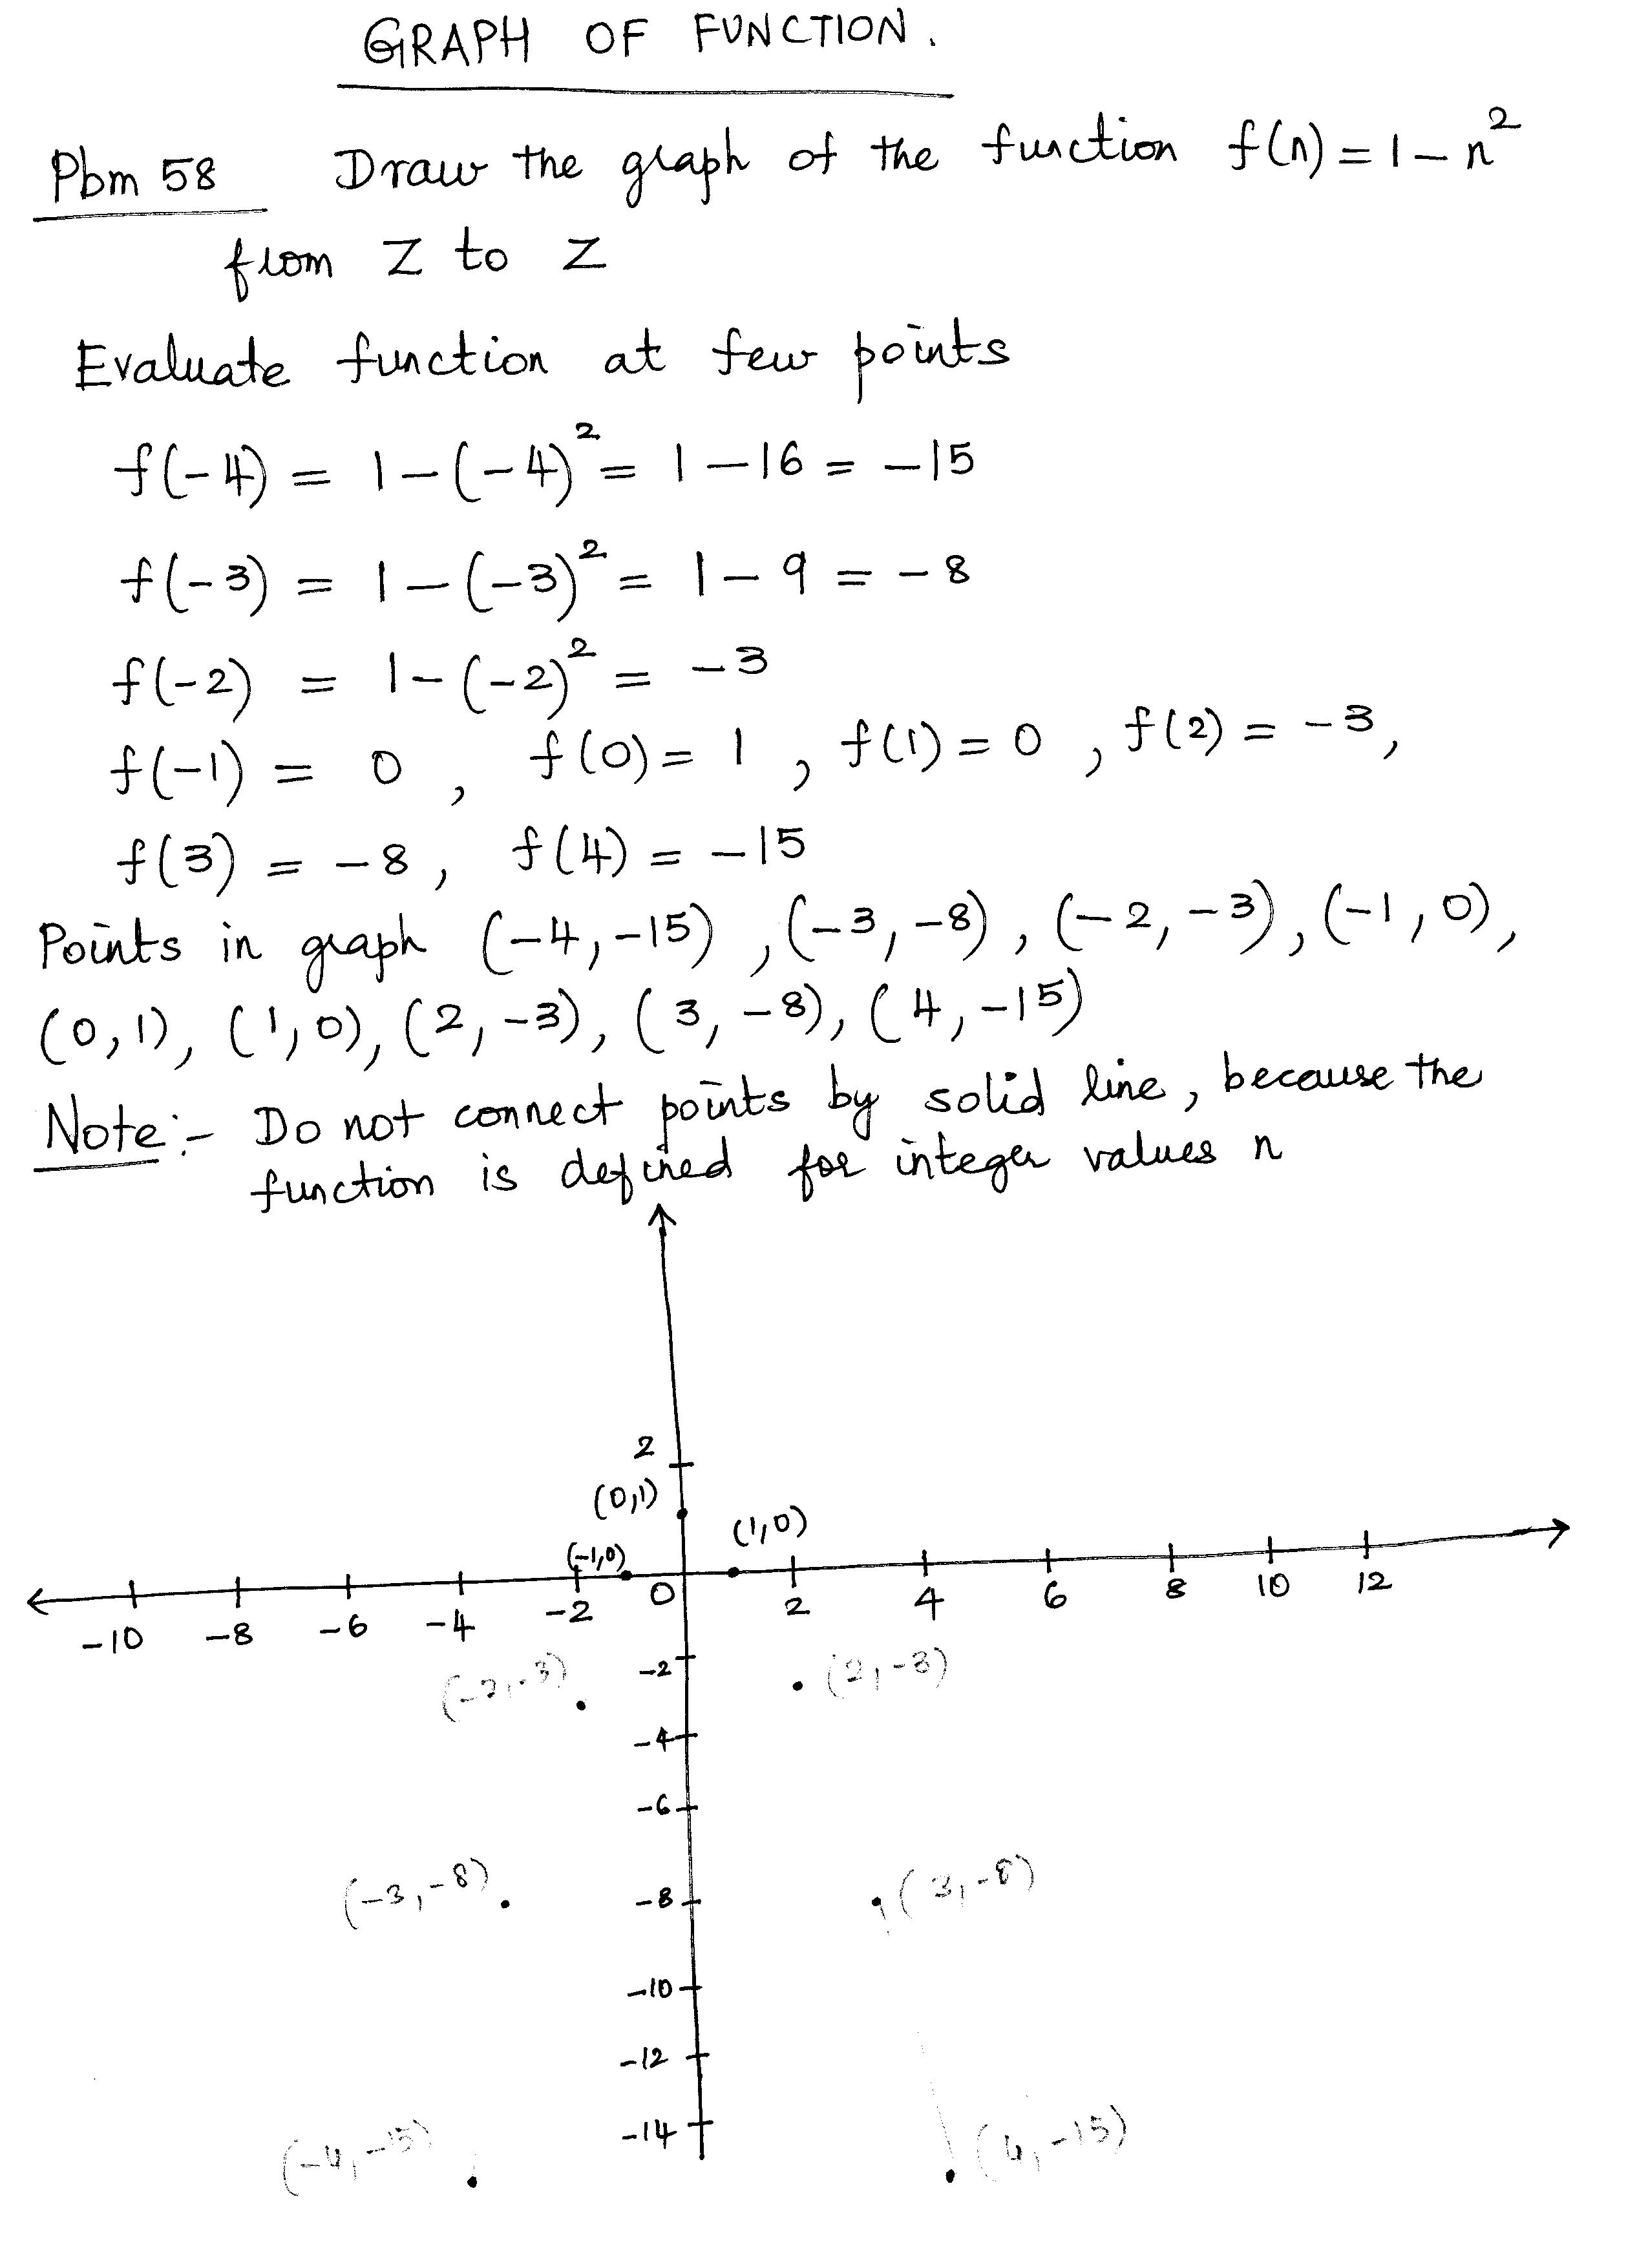 GRAPH OF FUNCTION.
Pbm 58 Draw the graph of the function f(n) = 1 - n²
from Z to Z
Evaluate function at few points
f(-4) = 1-(-4)² = 1-16 = -15
f(-3) = 1-(-3)² = 1-9 = -8
f(-2) = 1-(-2)² = -3
f(-1) = 0, f(0) = 1, f(1) = 0, f(2) = -3,
f(3) = -8, f(4) = -15
Points in graph (-4,-15), (-3,-8), (-2,-3), (-1,0),
(0,1), (1,0), (2,-3), (3,-8), (4,-15)
Note:- Do not connect points by solid line, because the
function is defined for integer values n
2
(0,1)
(1,0)
(-1,0)
-10 -8 -6 -4 -2 0 2 4 6 8 10 12
(-2,-3) -2 (2,-3)
-4
-6
(-3,-8) -8 (3,-8)
-10
-12
-14
(-4,-15) (4,-15)